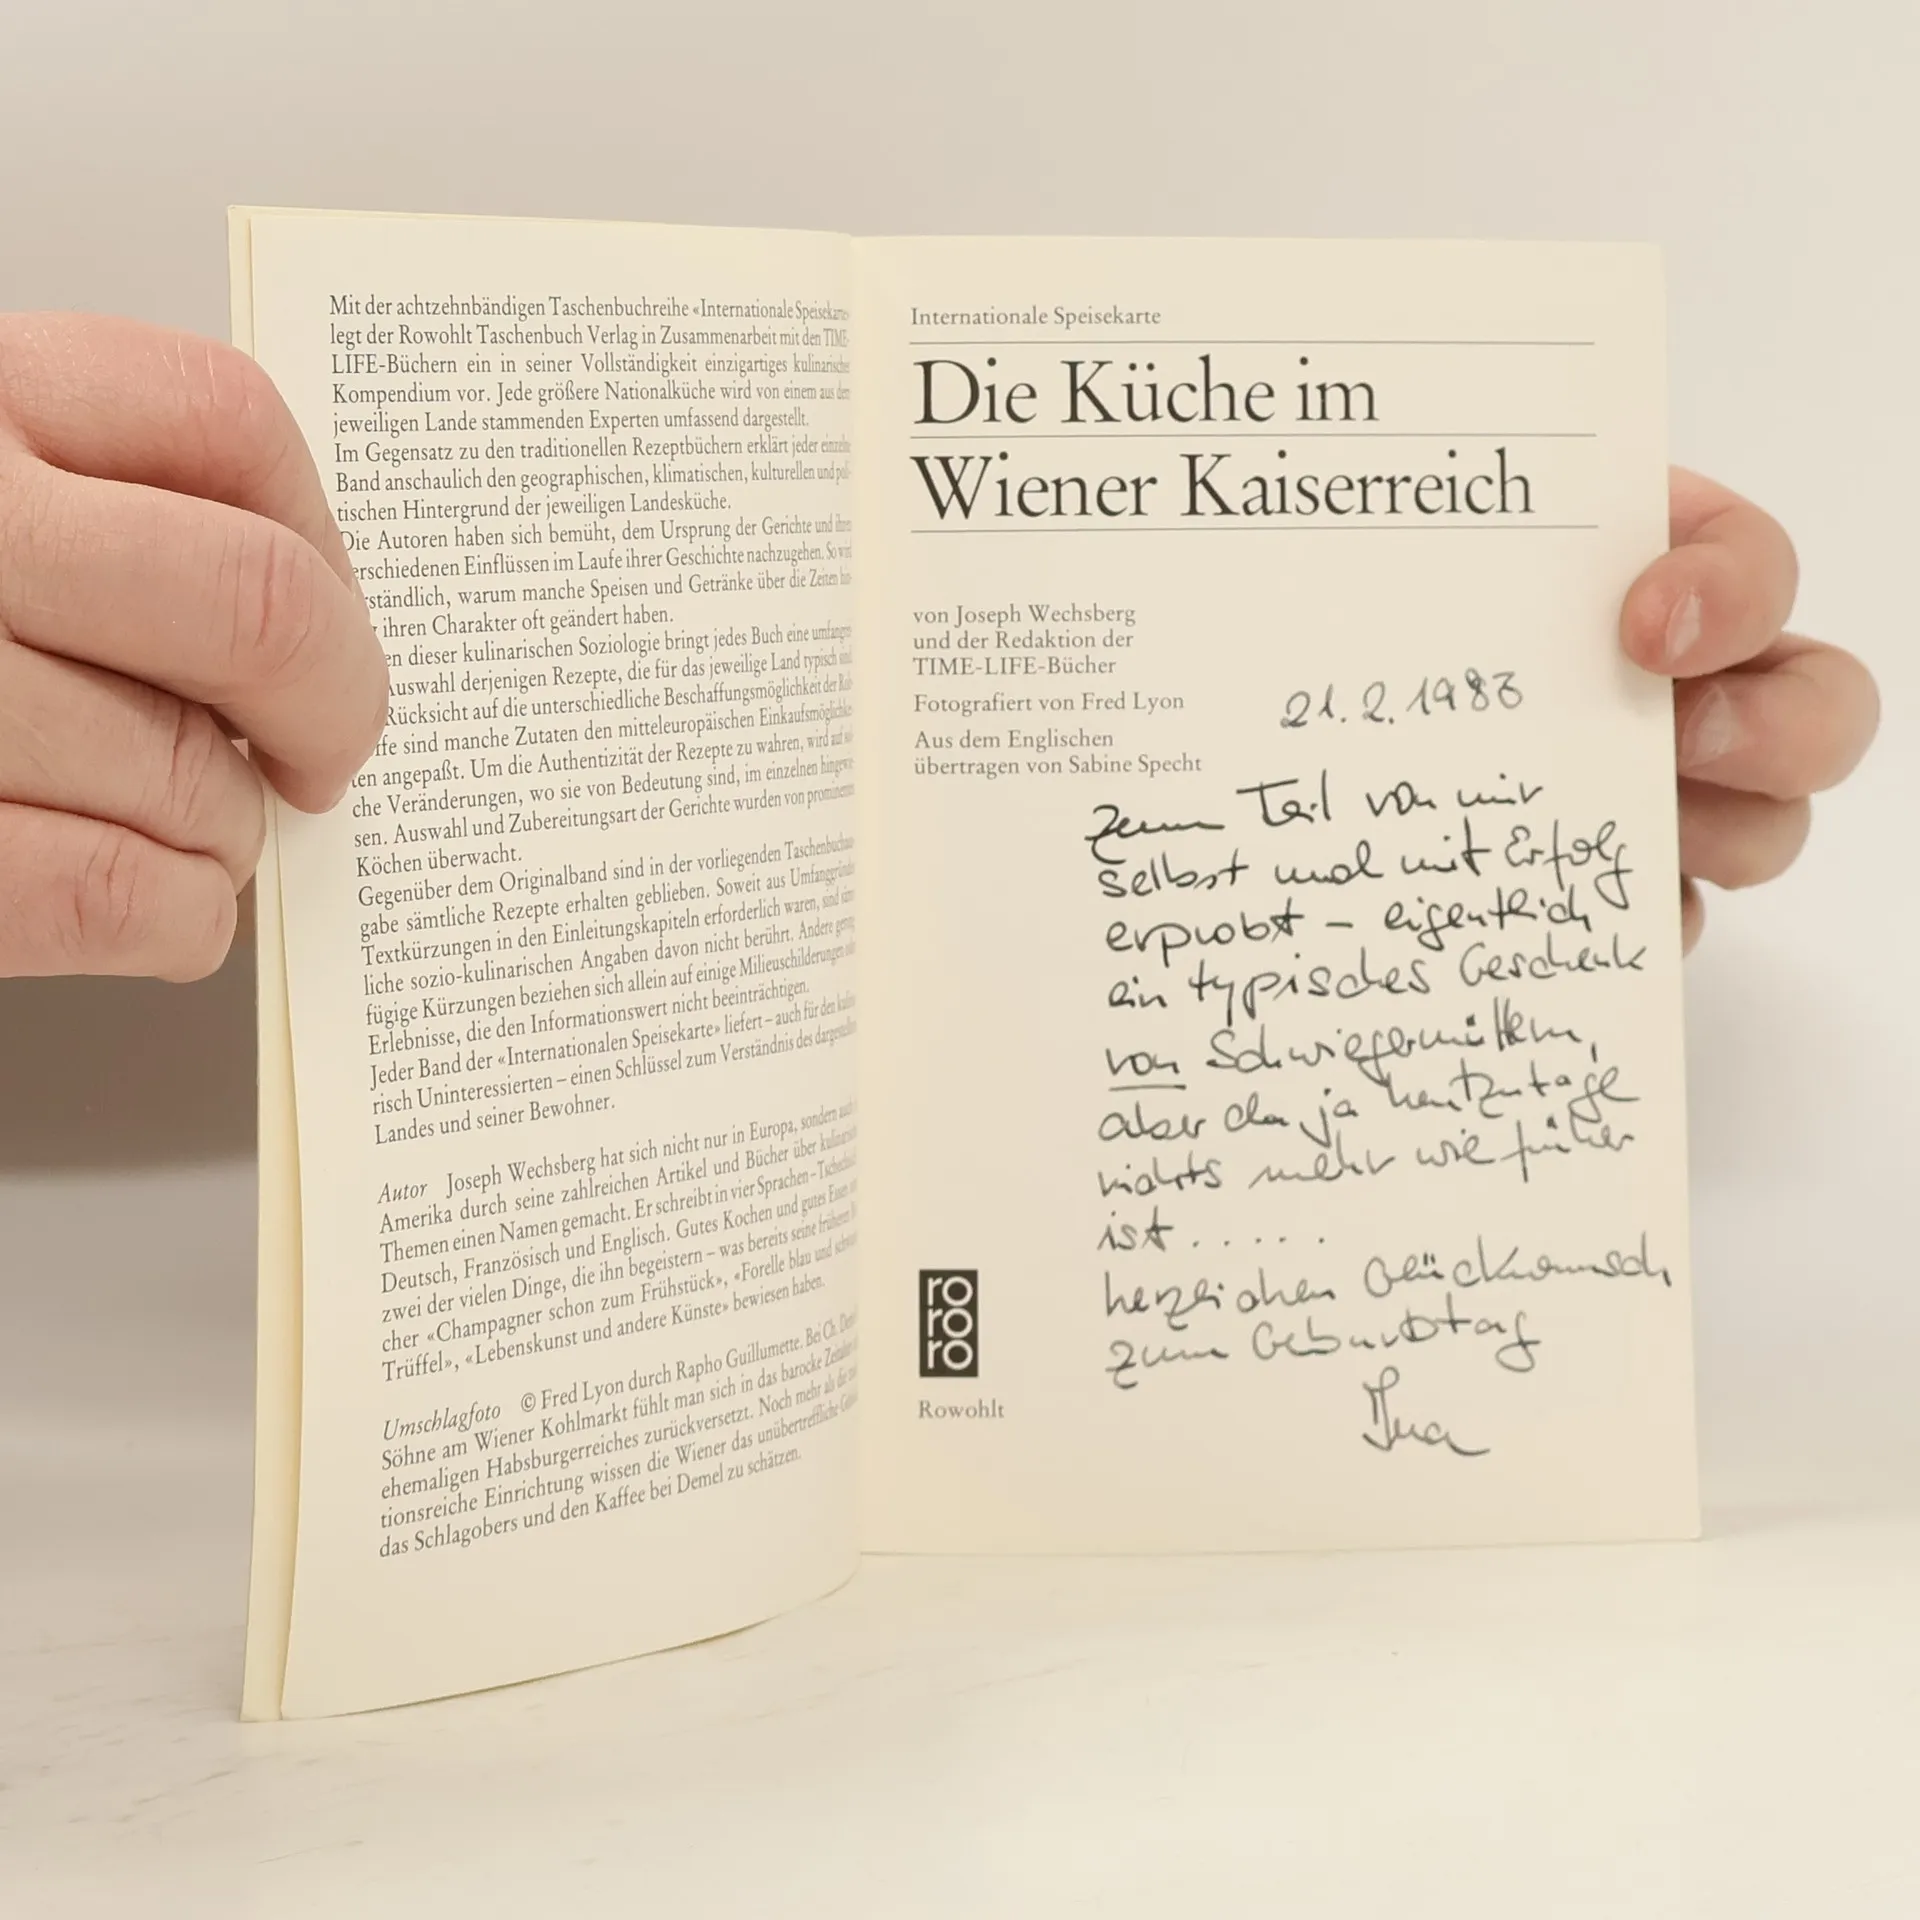 Mit der achtzehnbändigen Taschenbuchreihe «Internationale Speisekarte»
legt der Rowohlt Taschenbuch Verlag in Zusammenarbeit mit den TIME-
LIFE-Büchern ein in seiner Vollständigkeit einzigartiges kulinarisches
Kompendium vor. Jede größere Nationalküche wird von einem aus dem
jeweiligen Lande stammenden Experten umfassend dargestellt.
Im Gegensatz zu den traditionellen Rezeptbüchern erklärt jeder einzelne
Band anschaulich den geographischen, klimatischen, kulturellen und poli-
tischen Hintergrund der jeweiligen Landesküche.
Die Autoren haben sich bemüht, dem Ursprung der Gerichte und ihren
erschiedenen Einflüssen im Laufe ihrer Geschichte nachzugehen. So wird
rständlich, warum manche Speisen und Getränke über die Zeiten hin-
ihren Charakter oft geändert haben.
en dieser kulinarischen Soziologie bringt jedes Buch eine umfangrei
Auswahl derjenigen Rezepte, die für das jeweilige Land typisch sind
Rücksicht auf die unterschiedliche Beschaffungsmöglichkeit der Roh
ffe sind manche Zutaten den mitteleuropäischen Einkaufsmöglichkei
ten angepaßt. Um die Authentizität der Rezepte zu wahren, wird auf sol
che Veränderungen, wo sie von Bedeutung sind, im einzelnen hingewie
sen. Auswahl und Zubereitungsart der Gerichte wurden von prominenten
Köchen überwacht.
Gegenüber dem Originalband sind in der vorliegenden Taschenbuchaus
gabe sämtliche Rezepte erhalten geblieben. Soweit aus Umfanggründen
Textkürzungen in den Einleitungskapiteln erforderlich waren, sind
liche sozio-kulinarischen Angaben davon nicht berührt. Andere gering
fügige Kürzungen beziehen sich allein auf einige Milieuschilderungen oder
Erlebnisse, die den Informationswert nicht beeinträchtigen.
Jeder Band der «Internationalen Speisekarte» liefert – auch für den kulina
risch Uninteressierten – einen Schlüssel zum Verständnis des dargestellten
Landes und seiner Bewohner.
Autor Joseph Wechsberg hat sich nicht nur in Europa, sondern auch
Amerika durch seine zahlreichen Artikel und Bücher über kulinarische
Themen einen Namen gemacht. Er schreibt in vier Sprachen – Tschechisch
Deutsch, Französisch und Englisch. Gutes Kochen und gutes Essen
zwei der vielen Dinge, die ihn begeistern – was bereits seine früheren
cher «Champagner schon zum Frühstück», «Forelle blau und schwarze
Trüffel», «Lebenskunst und andere Künste» bewiesen haben.
Umschlagfoto © Fred Lyon durch Rapho Guillumette. Bei Ch. Demel
Söhne am Wiener Kohlmarkt fühlt man sich in das barocke Zeitalter
ehemaligen Habsburgerreiches zurückversetzt. Noch mehr als die
tionsreiche Einrichtung wissen die Wiener das unübertreffliche
das Schlagobers und den Kaffee bei Demel zu schätzen.
Internationale Speisekarte
Die Küche im
Wiener Kaiserreich
von Joseph Wechsberg
und der Redaktion der
TIME-LIFE-Bücher
Fotografiert von Fred Lyon
Aus dem Englischen
übertragen von Sabine Specht
21.2.1983
Zum Teil von mir
selbst und mit Erfolg
erprobt – eigentlich
ein typisches Geschenk
von Schwiegermüttern,
aber da ja heutzutage
nichts mehr wie früher
ist . . . . .
herzlichen Glückwunsch
zum Geburtstag
ro
ro
ro
Rowohlt